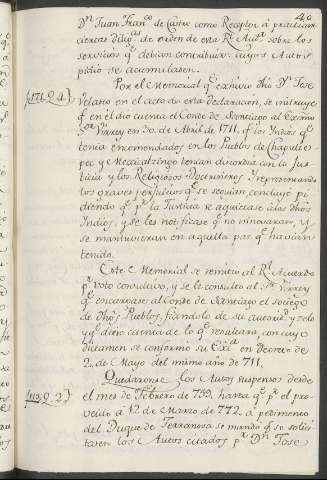 40
Dn Juan Franco de Castro como Receptor á practicar
ciertas diligas de orden de esta Rl Auda sobre los
servicios qe debian contribuir, cuyos Autos
pidio se acumulasen.
Por el Memorial qe exhivio dho Dn Jose
Velano en el acto de esta declaracion, se instruye
qe en el dia cuenta el Conde de Santiago al Exmo
Sor Virrey en 30 de Abril de 1711. qe los Indios qe
tenia encomendados en los Pueblos de Chapulte
pec y Mexicalzingo tenian discordia con la Jus
ticia y los Religiosos Doctrineros. Representando
los graves perjuicios qe se seguian, concluyó pi
diendo qe pr la Justicia se aquietase á los dhos
Indios, y se les notificase qe no innovaran, y
se mantuvieran en aquella paz qe havian
tenido.
Este Memorial se remitio al Rl Acuerdo
pr voto consultivo, y se le consultó al Sor Virrey
qe encargase al Conde de Santiago el sociego
de dhos Pueblos, fiandolo de su autoridd y zelo
y qe diera cuenta de lo qe resultara, con cuyo
dictamen se conformó su Exca en Decreto de
2,, de Mayo del mismo año de 711.
Quedaronse los Autos suspensos desde
el mes de Febrero de 759, hasta qe pr el pro
veido á 12 de Marzo de 772. á pedimento
del Duque de Terranova se mandó qe se solici
tasen los Autos citados pr Dn Jose